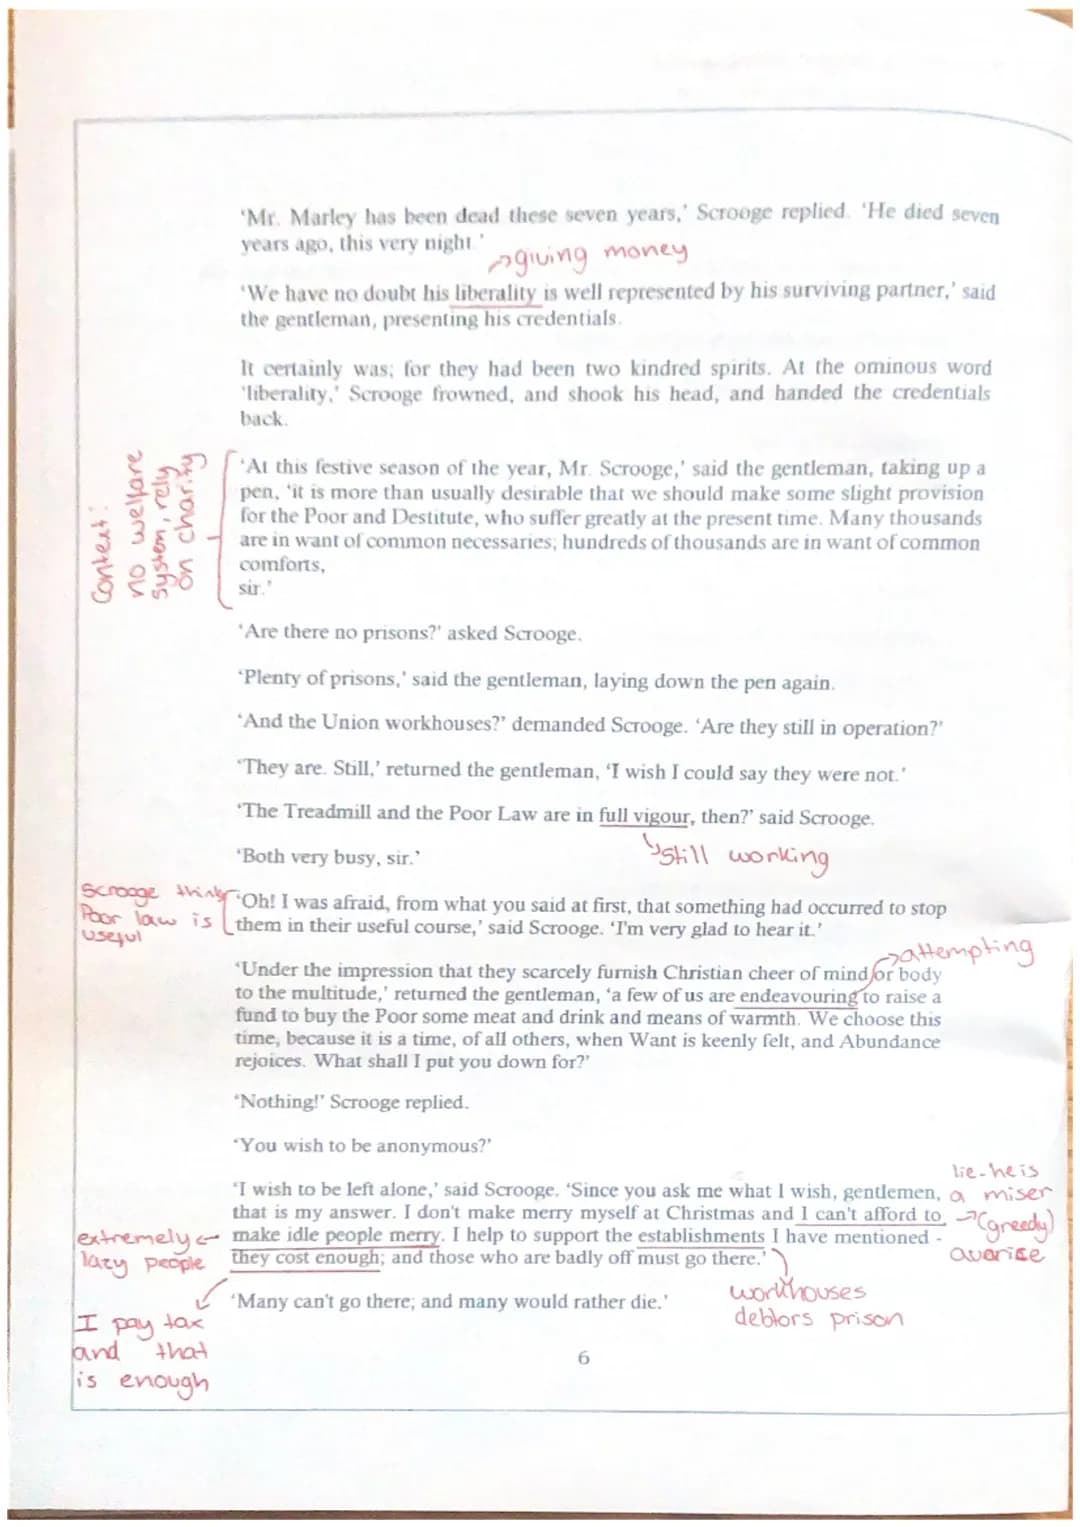 'Mr. Marley has been dead these seven years,' Scrooge replied. 'He died seven
years ago, this very night.'
→giving money
'We have no doubt his liberality is well represented by his surviving partner,' said
the gentleman, presenting his credentials.
It certainly was; for they had been two kindred spirits. At the ominous word
'liberality,' Scrooge frowned, and shook his head, and handed the credentials
back.
Context:
no welfare
system, rely
on charity
'At this festive season of the year, Mr. Scrooge,' said the gentleman, taking up a
pen, 'it is more than usually desirable that we should make some slight provision
for the Poor and Destitute, who suffer greatly at the present time. Many thousands
are in want of common necessaries; hundreds of thousands are in want of common
comforts,
sir.'
'Are there no prisons?' asked Scrooge.
'Plenty of prisons,' said the gentleman, laying down the pen again.
'And the Union workhouses?' demanded Scrooge. 'Are they still in operation?'
'They are. Still,' returned the gentleman, 'I wish I could say they were not.'
'The Treadmill and the Poor Law are in full vigour, then?' said Scrooge.
'Both very busy, sir.'
still working
Scrooge thinks
Poor law is
useful
'Oh! I was afraid, from what you said at first, that something had occurred to stop
them in their useful course,' said Scrooge. 'I'm very glad to hear it.'
→attempting
'Under the impression that they scarcely furnish Christian cheer of mind or body
to the multitude,' returned the gentleman, 'a few of us are endeavouring to raise a
fund to buy the Poor some meat and drink and means of warmth. We choose this
time, because it is a time, of all others, when Want is keenly felt, and Abundance
rejoices. What shall I put you down for?'
'Nothing!' Scrooge replied.
'You wish to be anonymous?'
'I wish to be left alone,' said Scrooge. 'Since you ask me what I wish, gentlemen,
that is my answer. I don't make merry myself at Christmas and I can't afford to
make idle people merry. I help to support the establishments I have mentioned -
they cost enough; and those who are badly off must go there.'
lie - he is
a miser
→(greedy)
avarice
extremely
lazy people
'Many can't go there; and many would rather die.'
workhouses
debtors prison
I pay tax
and that
is enough
6